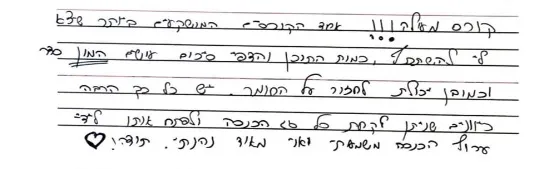 קורס מעולה!!! אחד הקורסים המושקעים ביותר שיצא
לי להשתתף, כמות התוכן והדפי סיכום עושים המון סדר
וכמובן יכולת לחזור על החומר. יש כל כך הרבה
כיוונים שניתן לקחת כל סוג הכנסה ולפתח אותו לידי
ערוץ הכנסה משמעותי ואני מאוד נהנתי. תודה! ♡